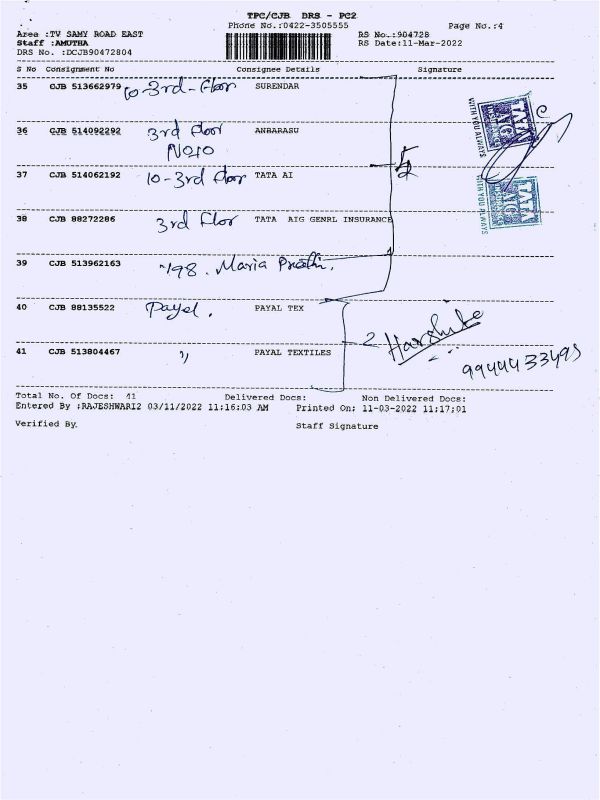 TPC/CJB DRS - PC2
Phone No.:0422-3505555
Page No.:4
Area :TV SAMY ROAD EAST
RS No.:904728
Staff :AMUTHA
RS Date:11-Mar-2022
DRS No. :DCJB90472804
S No Consignment No Consignee Details Signature
35 CJB 513662979 10-3rd-Floor SURENDAR
36 CJB 514092292 3rd floor ANBARASU
NO10
37 CJB 514062192 10-3rd floor TATA AI
5
38 CJB 88272286 3rd floor TATA AIG GENRL INSURANCE
TATA AIG
WITH YOU ALWAYS
TATA AIG
WITH YOU ALWAYS
39 CJB 513962163 198. Maria
40 CJB 88135522 Payal. PAYAL TEX
2
41 CJB 513804467 " PAYAL TEXTILES
Total No. Of Docs: 41 Delivered Docs: Non Delivered Docs:
Entered By :RAJESHWARI2 03/11/2022 11:16:03 AM Printed On; 11-03-2022 11:17;01
Verified By. Staff Signature